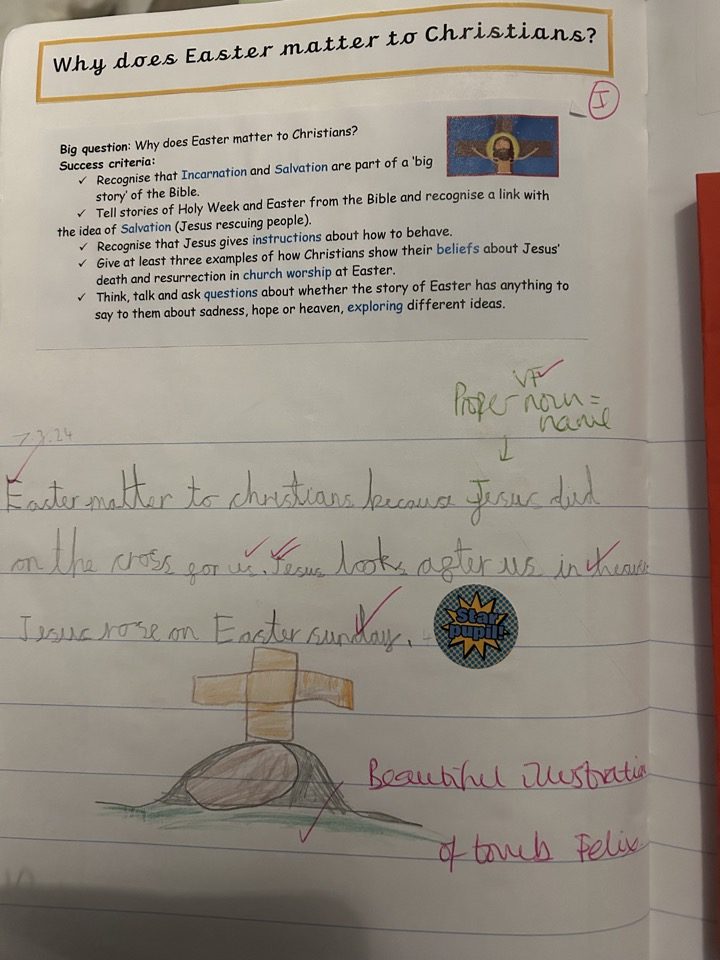 Why does Easter matter to Christians?
I
Big question: Why does Easter matter to Christians?
Success criteria:
✓ Recognise that Incarnation and Salvation are part of a 'big
story' of the Bible.
✓ Tell stories of Holy Week and Easter from the Bible and recognise a link with
the idea of Salvation (Jesus rescuing people).
✓ Recognise that Jesus gives instructions about how to behave.
✓ Give at least three examples of how Christians show their beliefs about Jesus'
death and resurrection in church worship at Easter.
✓ Think, talk and ask questions about whether the story of Easter has anything to
say to them about sadness, hope or heaven, exploring different ideas.
VF
Proper noun =
name
7.3.24
Easter matter to christians because Jesus did
on the cross for us. Jesus looks after us in
Jesus rose on Easter sunday.
Star pupil!
Beautiful illustration
of tomb Felix.